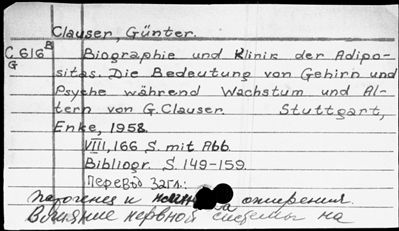 Clauser, Günter.
C 616 B
G
Biographie und Klinik der Adipo-
sitas. Die Bedeutung von Gehirn und
Psyche während Wachstum und Al-
tern von G. Clauser. Stuttgart,
Enke, 1958.
VIII, 166 S. mit Abb.
Bibliogr. S. 149-159.
Перевод загл.:
Патогенез и ожирения.
Влияние нервной системы на